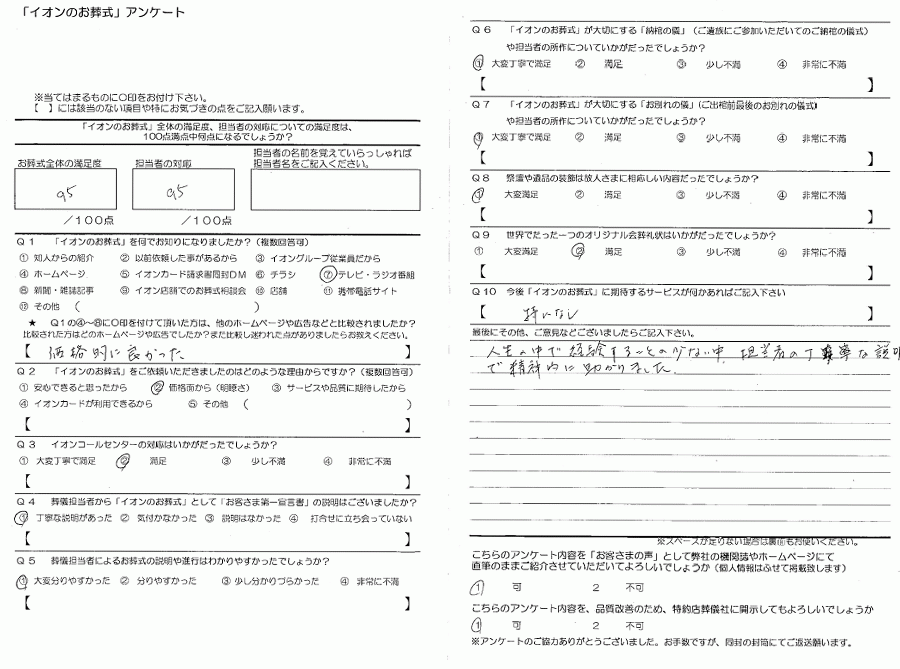 「イオンのお葬式」アンケート
※当てはまるものに○印をお付け下さい。
【　】には該当のない項目や特にお気づきの点をご記入願います。
「イオンのお葬式」全体の満足度、担当者の対応についての満足度は、
100点満点中何点になるでしょうか？
お葬式全体の満足度
担当者の対応
担当者の名前を覚えていらっしゃれば
担当者名をご記入ください。
95
95
／100点
／100点
Q1　「イオンのお葬式」を何でお知りになりましたか？（複数回答可）
① 知人からの紹介　② 以前依頼した事があるから　③ イオングループ従業員だから
④ ホームページ　⑤ イオンカード請求書同封DM　⑥ チラシ　⑦ テレビ・ラジオ番組
⑧ 新聞・雑誌記事　⑨ イオン店舗でのお葬式相談会　⑩ 店舗　⑪ 携帯電話サイト
⑫ その他　（　）
★　Q1の④～⑧に○印を付けて頂いた方は、他のホームページや広告などと比較されましたか？
比較された方はどのホームページや広告でしたか？また比較し迷われた点がありましたらお教えください。
【　価格的に良かった　】
Q2　「イオンのお葬式」をご依頼いただきましたのはどのような理由からですか？（複数回答可）
① 安心できると思ったから　② 価格面から（明瞭さ）　③ サービスや品質に期待したから
④ イオンカードが利用できるから　⑤ その他　（　）
【　】
Q3　イオンコールセンターの対応はいかがだったでしょうか？
① 大変丁寧で満足　② 満足　③ 少し不満　④ 非常に不満
【　】
Q4　葬儀担当者から「イオンのお葬式」として「お客さま第一宣言書」の説明はございましたか？
① 丁寧な説明があった　② 気付かなかった　③ 説明はなかった　④ 打合せに立ち会っていない
【　】
Q5　葬儀担当者によるお葬式の説明や進行はわかりやすかったでしょうか？
① 大変分りやすかった　② 分りやすかった　③ 少し分かりづらかった　④ 非常に不満
【　】
Q6　「イオンのお葬式」が大切にする「納棺の儀」（ご遺族にご参加いただいてのご納棺の儀式）
や担当者の所作についていかがだったでしょうか？
① 大変丁寧で満足　② 満足　③ 少し不満　④ 非常に不満
【　】
Q7　「イオンのお葬式」が大切にする「お別れの儀」（ご出棺前最後のお別れの儀式）
や担当者の所作についていかがだったでしょうか？
① 大変丁寧で満足　② 満足　③ 少し不満　④ 非常に不満
【　】
Q8　祭壇や遺品の装飾は故人さまに相応しい内容だったでしょうか？
① 大変満足　② 満足　③ 少し不満　④ 非常に不満
【　】
Q9　世界でたった一つのオリジナル会葬礼状はいかがだったでしょうか？
① 大変満足　② 満足　③ 少し不満　④ 非常に不満
【　】
Q10　今後「イオンのお葬式」に期待するサービスが何かあればご記入下さい
【　特になし　】
最後にその他、ご意見などございましたらご記入下さい。
人生の中で経験することの少ない中、担当者の丁寧な説明
で精神的に助かりました。
※スペースが足りない場合は裏面もお使いください。
こちらのアンケート内容を「お客さまの声」として弊社の機関誌やホームページにて
直筆のままご紹介させていただいてよろしいでしょうか（個人情報はふせて掲載致します）
1　可　2　不可
こちらのアンケート内容を、品質改善のため、特約店葬儀社に開示してもよろしいでしょうか
1　可　2　不可
※アンケートのご協力ありがとうございました。お手数ですが、同封の封筒にてご返送願います。